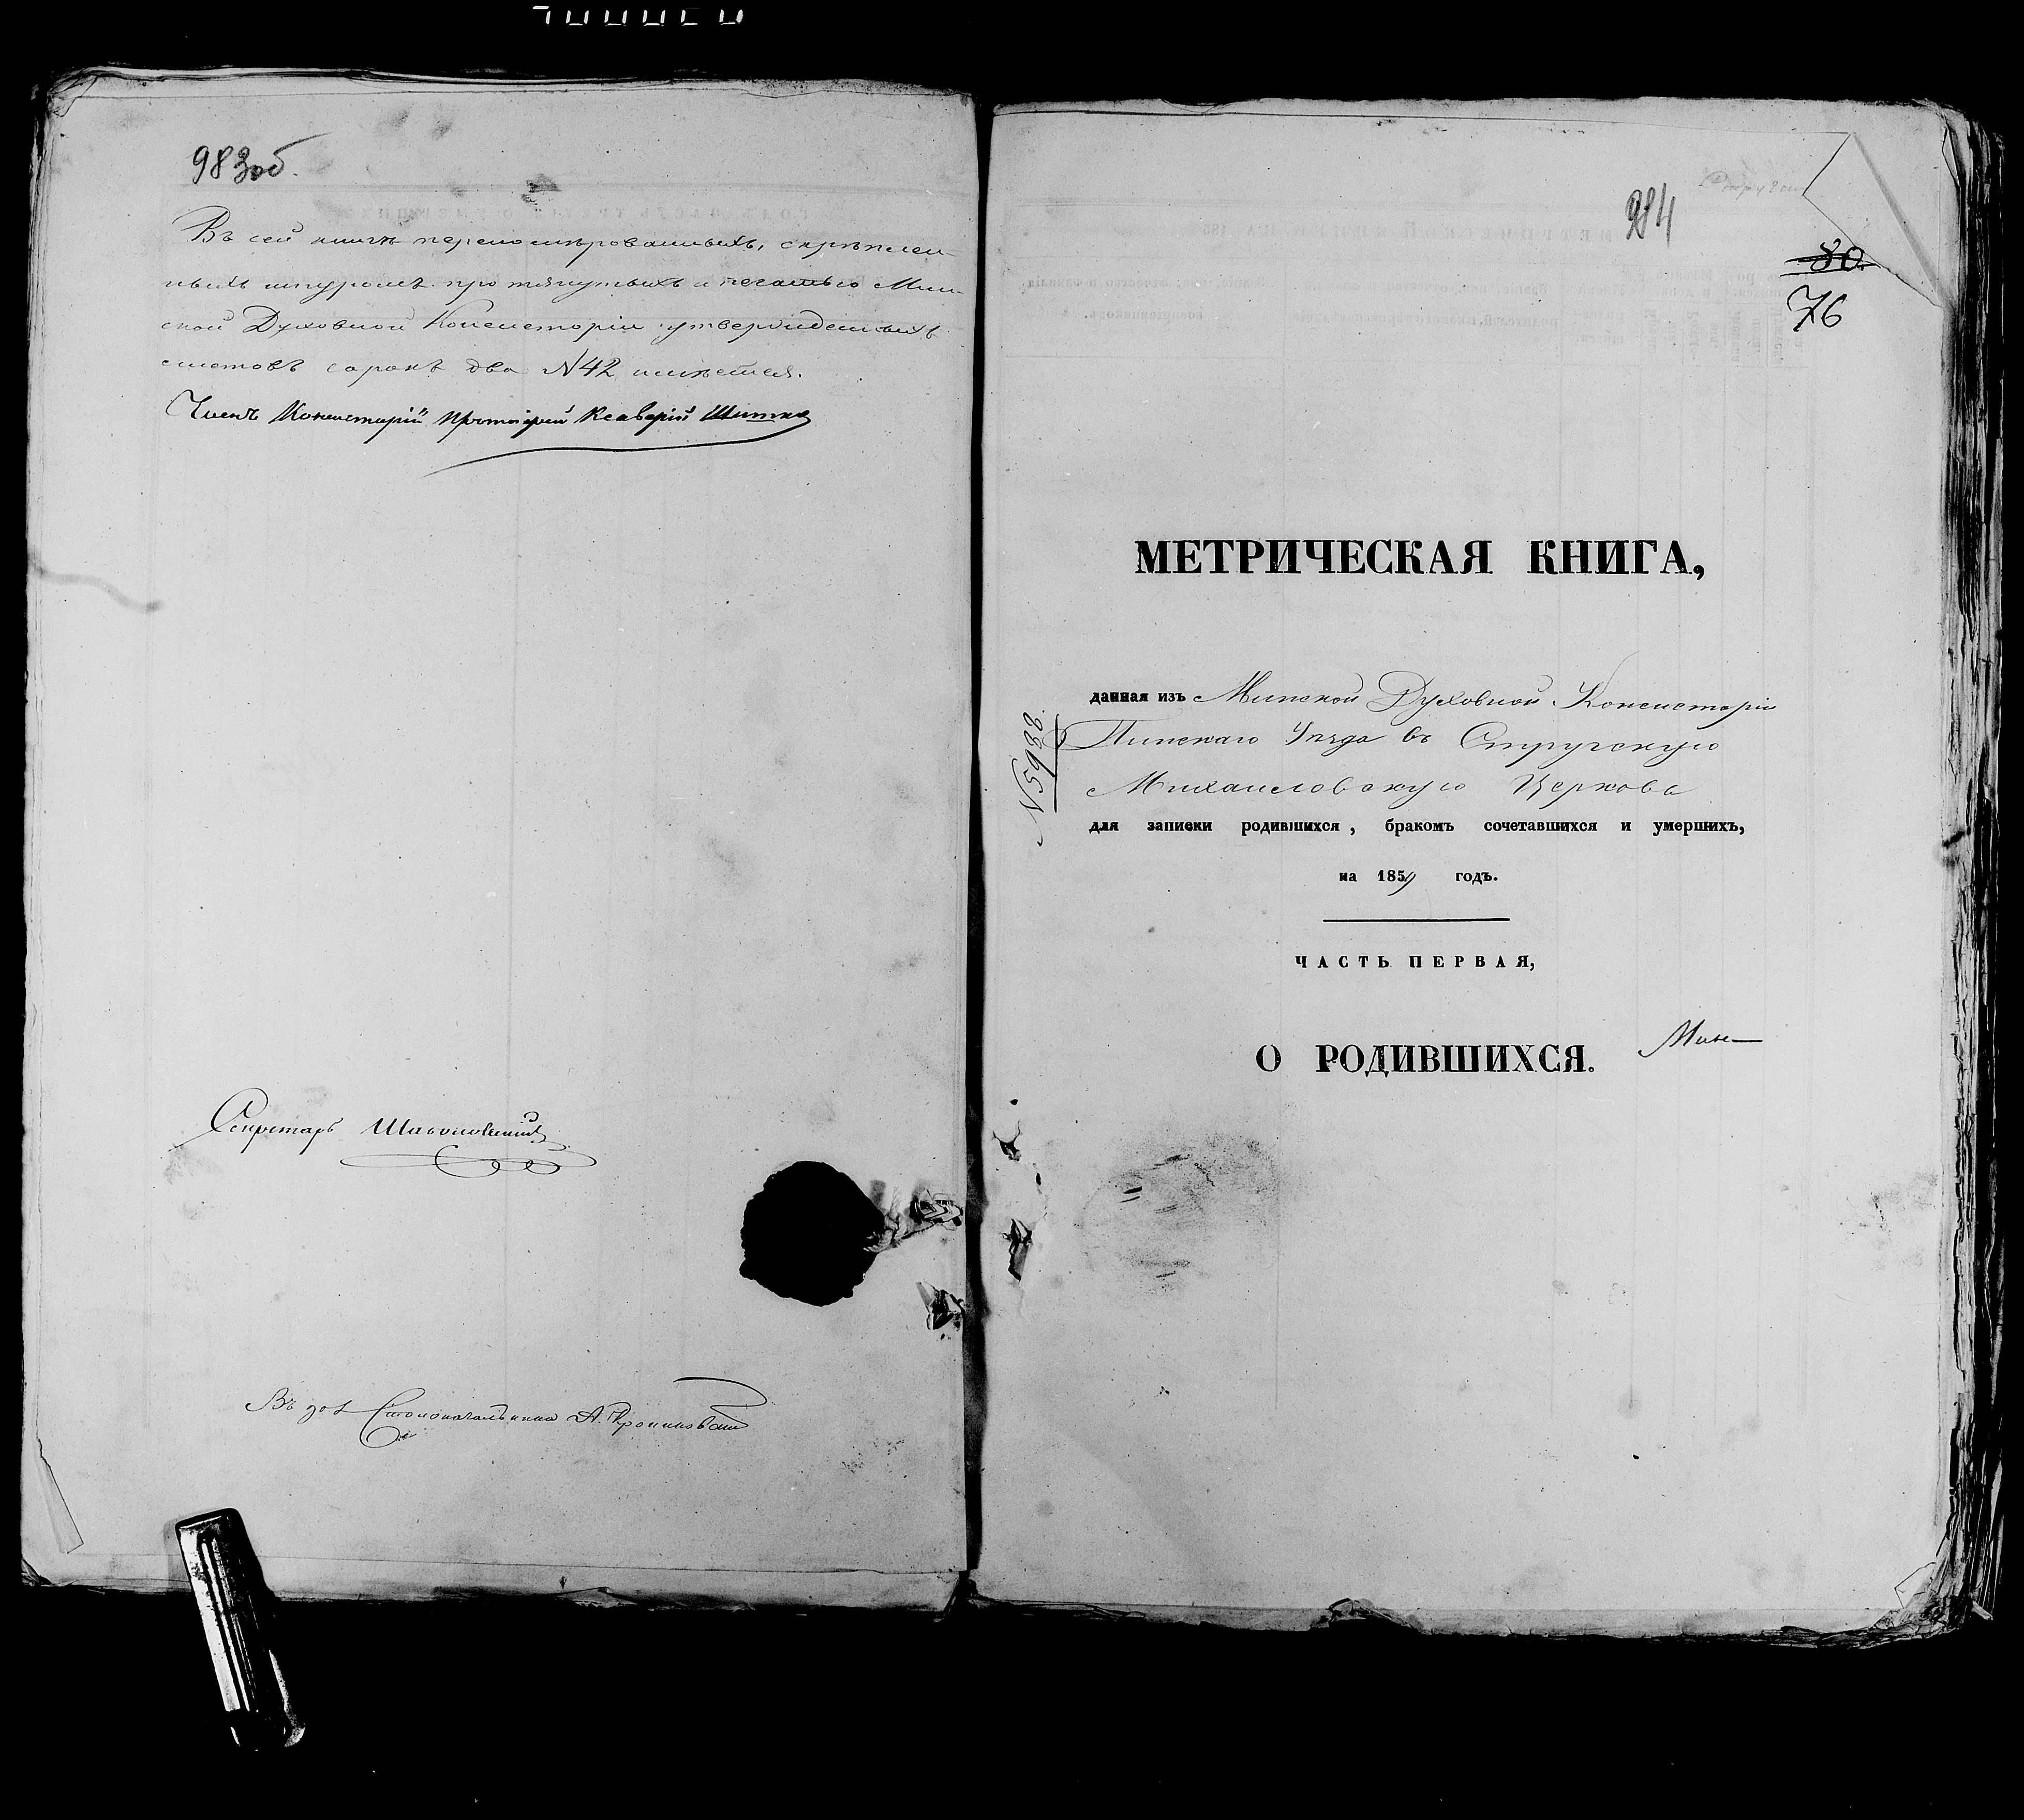 983об.
Въ сей книгѣ переномерованныхъ, скрѣплен-
ныхъ шнуромъ протянутыхъ и печатью Мин-
ской Духовной Консисторіи утвержденныхъ
листовъ сорокъ два №42 имѣется.
Членъ Консисторіи Протоіерей Ксаверій
Секретарь
Столоначальника А.
984
80.
76
МЕТРИЧЕСКАЯ КНИГА,
данная изъ Минской Духовной Консисторіи
Пинскаго Уѣзда въ Стругскую
Михаиловскую Церковь
№5988
для записки родившихся, бракомъ сочетавшихся и умершихъ,
на 1859 годъ.
ЧАСТЬ ПЕРВАЯ,
О РОДИВШИХСЯ.
Мин